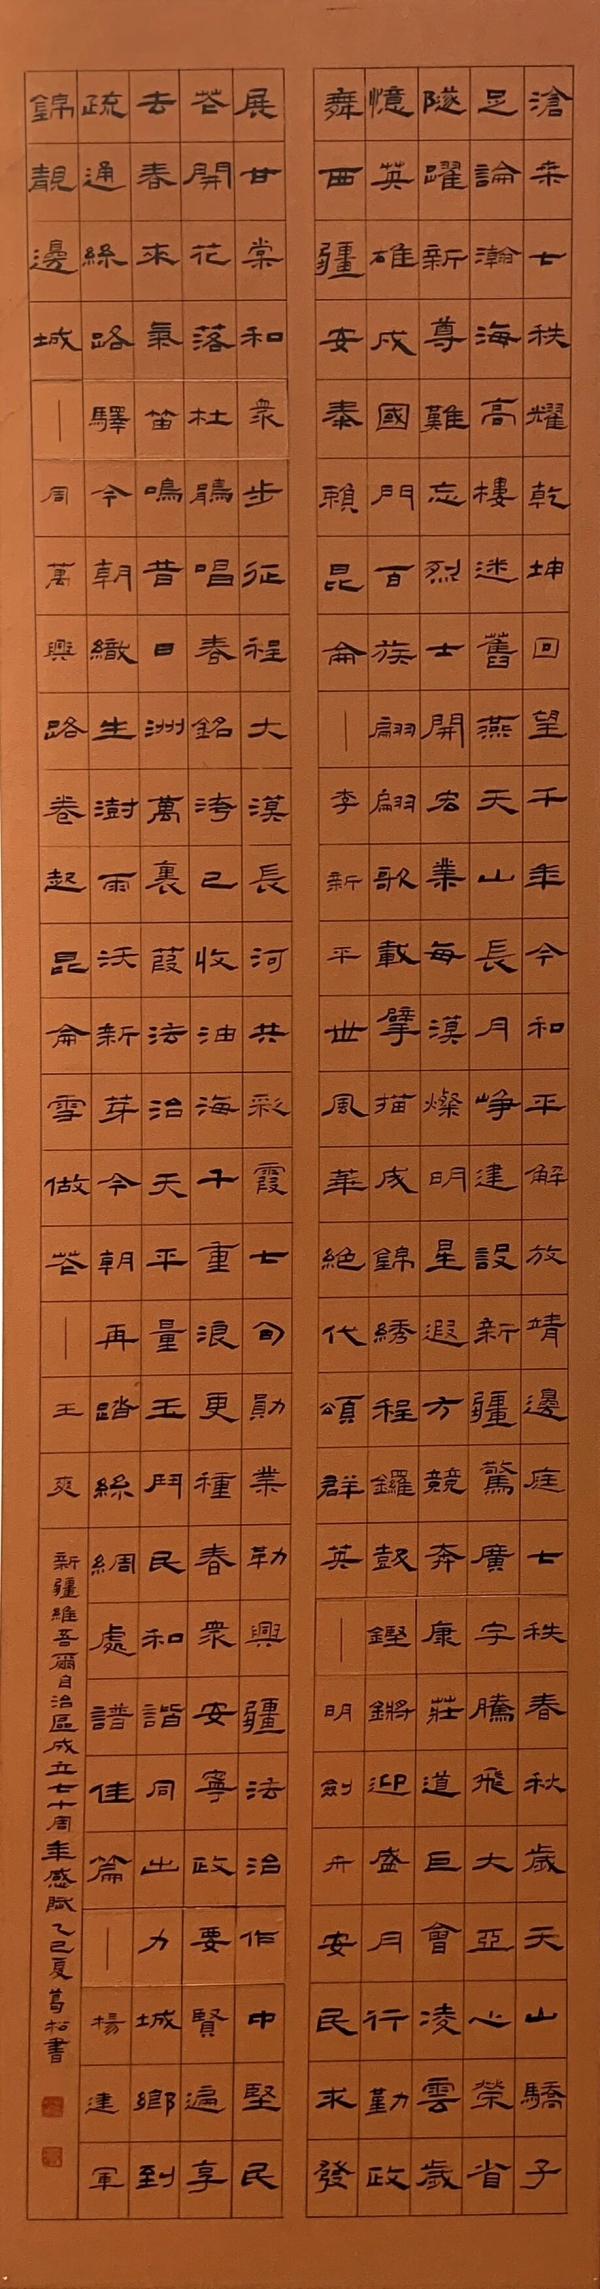 滄桑七秩耀乾坤回望千年今
足論瀚海高樓迷舊燕天山長
隧躍新尊難忘烈士開宏業每
憶英雄戍國門百族翩翩歌載
舞西疆安泰賴昆侖—李新平
和平解放靖邊庭七秩春秋歲
月崢建設新疆驚廣宇騰飛大
漠燦明星遐方競奔康莊道巨
擘描成錦綉程鑼鼓鏗鏘迎盛
世風華絕代頌群英—明劍舟
天山驕子
亞心榮省
會凌雲歲
月行勤政
安民求發
展甘棠和衆步征程
花開花落杜鵑唱春
去春來氣笛鳴昔日
疏通絲路驛今朝織
錦靚邊城—周萬興
大漠長河共彩霞七旬勛業勒
銘洿已收油海千重浪更種春
洲萬裏葭法治天平量玉鬥民
生澍雨沃新芽今朝再踏絲綢
路卷起昆侖雪做花—王爽
興疆法治作中堅民
衆安寧政要賢遍享
和諧同出力城鄉到
處譜佳篇—楊建軍
新疆維吾爾自治區成立七十周年感賦乙巳夏葛松書